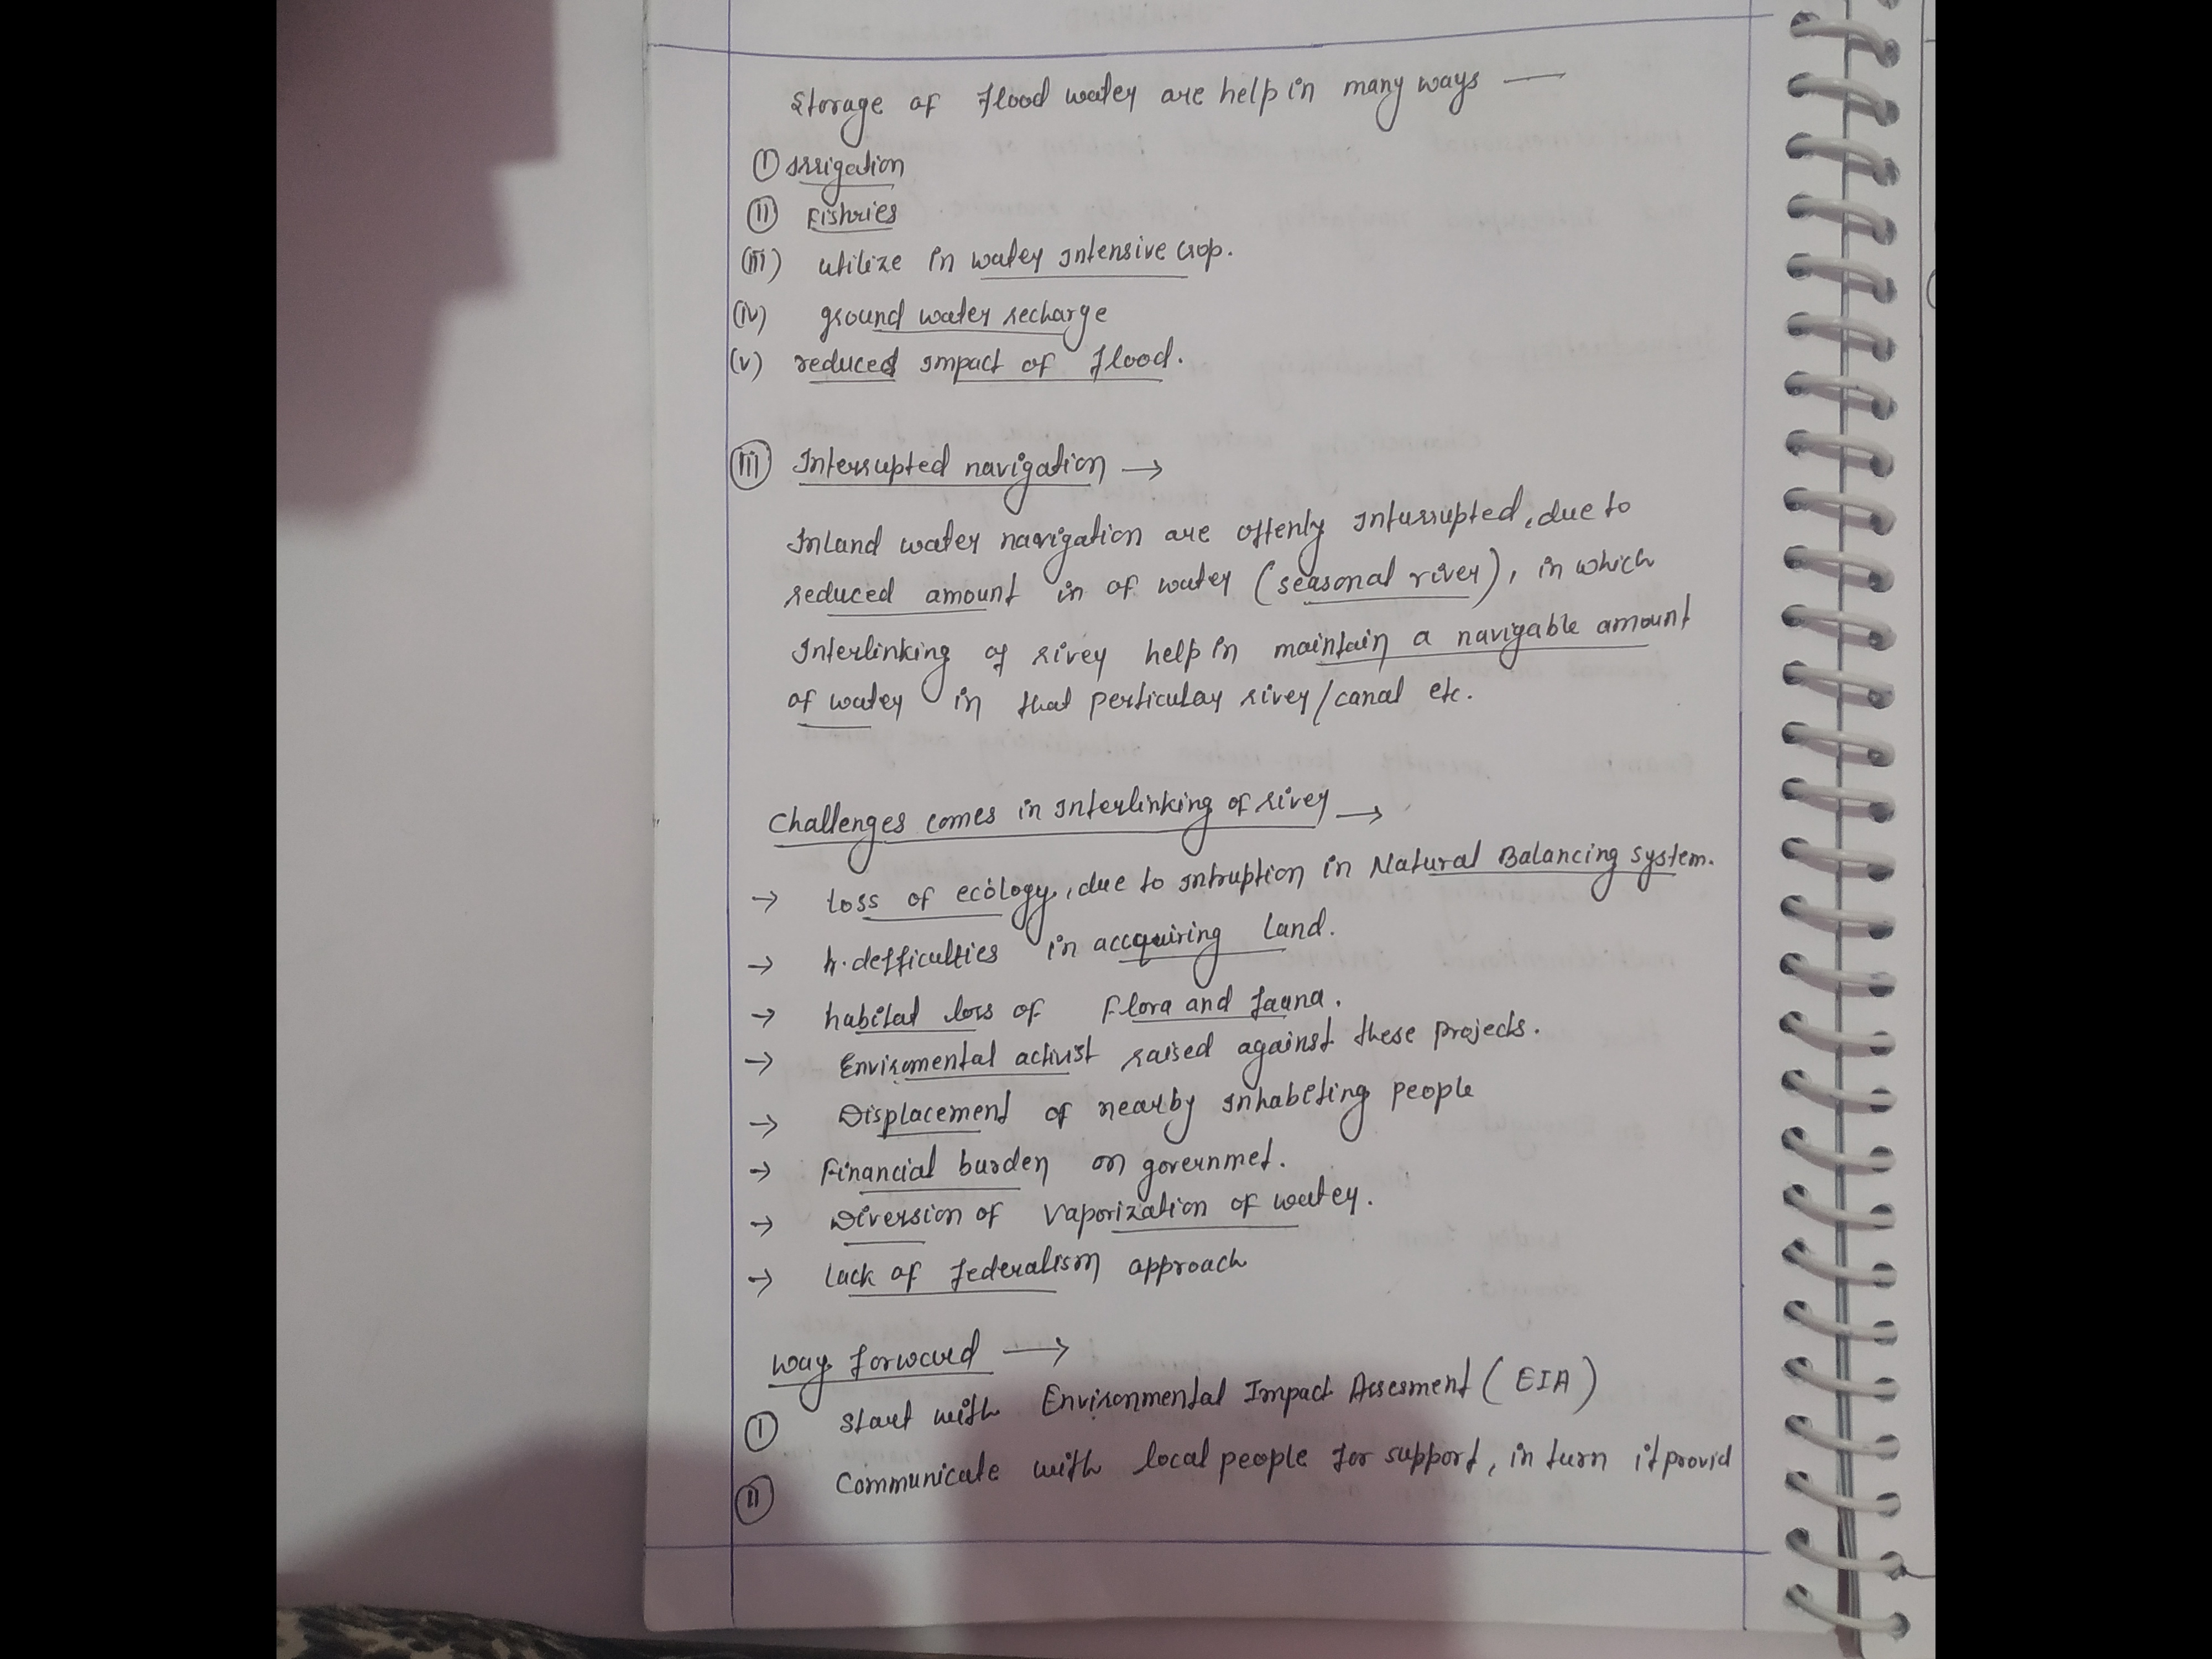 Storage of flood water are help in many ways —
(I) Irrigation
(II) Fishries
(III) utilize in water intensive crop.
(IV) ground water recharge
(V) reduced impact of flood.
(III) Interrupted navigation →
Inland water navigation are offenly inturrupted, due to
reduced amount in of water (seasonal river), in which
Interlinking of river help in maintain a navigable amount
of water in that perticular river/canal etc.
Challenges comes in interlinking of river →
→ loss of ecology, due to intruption in Natural Balancing system.
→ defficulties in accquiring Land.
→ habitat loss of Flora and fauna.
→ Enviromental activist raised against these projects.
→ Displacement of nearby inhabiting people
→ Financial burden on governmet.
→ Diversion of Vaporization of water.
→ Lack of federalism approach
Way forward →
(I) Start with Environmental Impact Assesment (EIA)
(II) Communicate with local people for support, in turn it provid